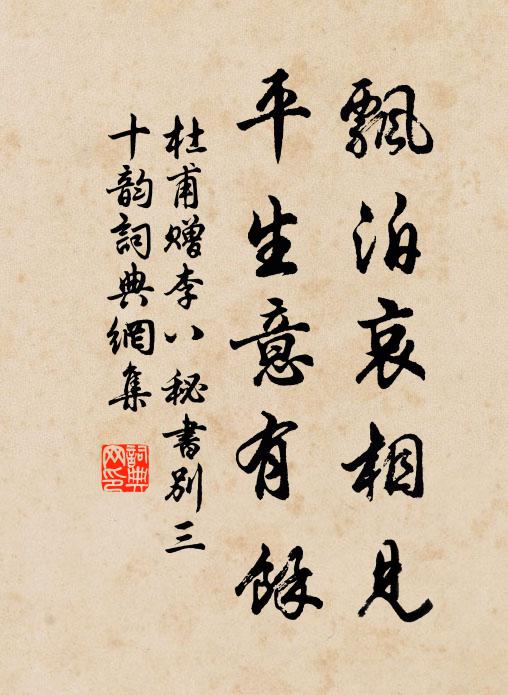 飄泊哀相見
平生意有餘
杜甫赠李八秘書別三
十韵詞典網集
詞典
网印